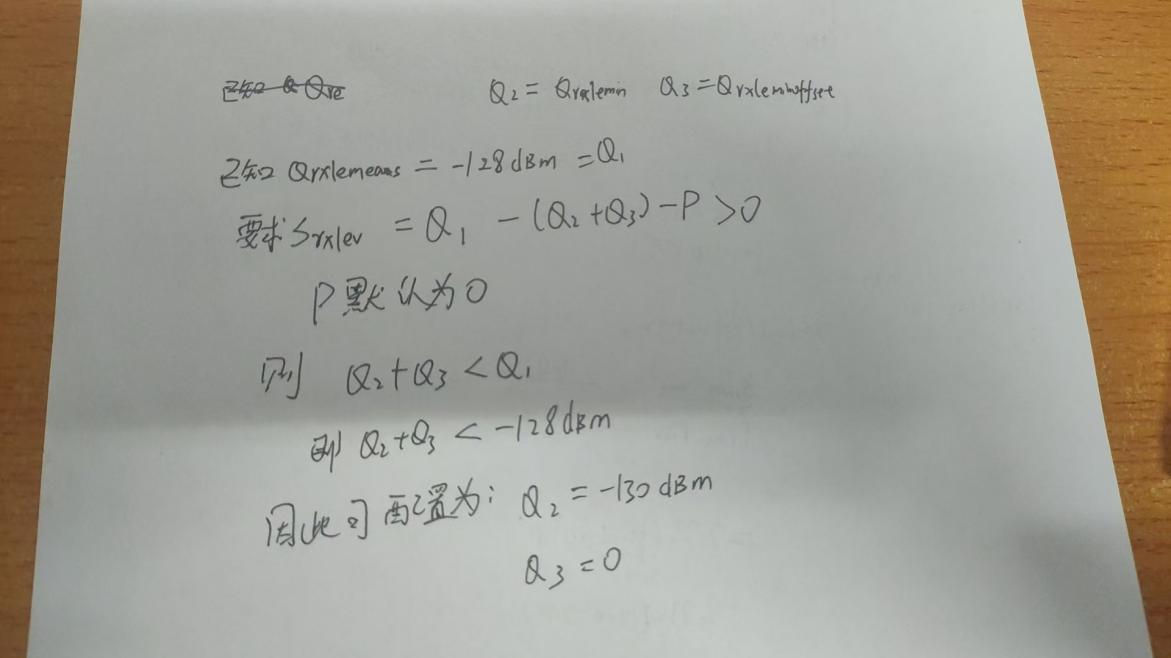 已知 Q Qre
Q₂ = Qrxlemin Q₃ = Qrxleminoffset
已知 Qrxlemeans = -128dBm = Q₁
要求 Srxlev = Q₁ - (Q₂+Q₃) - P > 0
P默认为0
则 Q₂+Q₃ < Q₁
即 Q₂+Q₃ < -128dBm
因此可配置为: Q₂ = -130dBm
Q₃ = 0